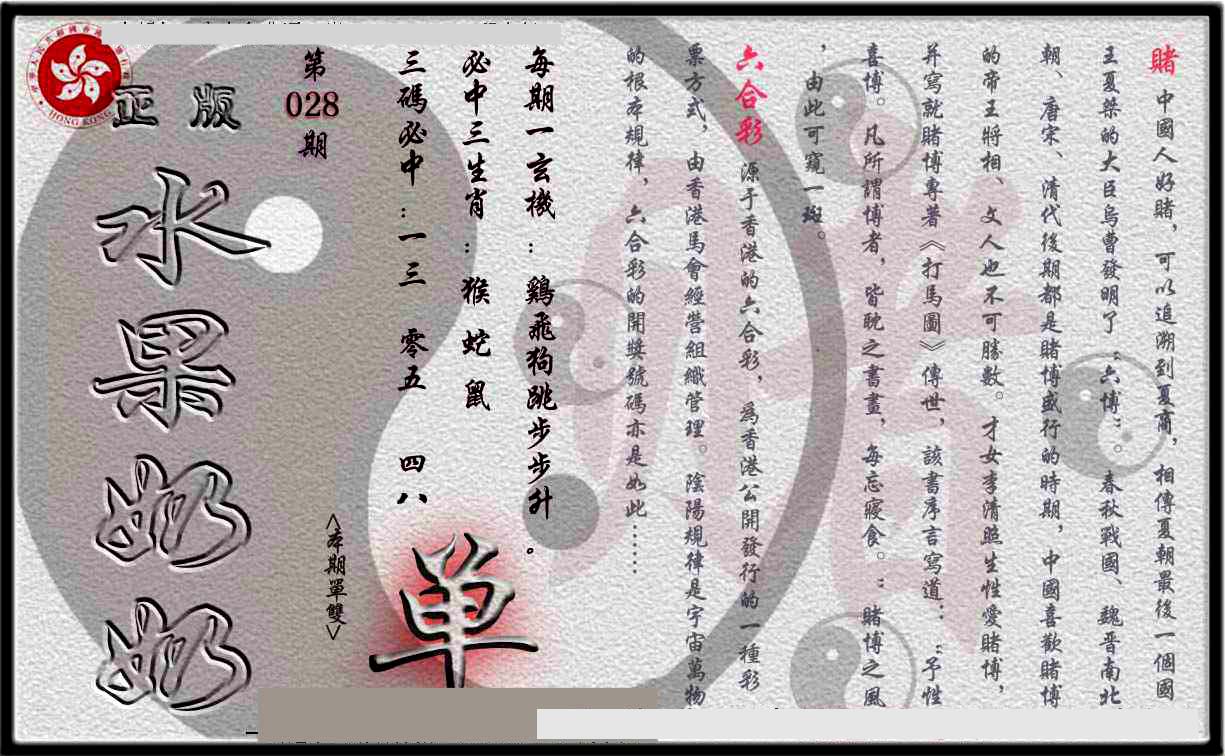 賭 中國人好賭，可以追溯到夏商，相傳夏朝最後一個國
王夏桀的大臣烏曹發明了“六博”。春秋戰國、魏晋南北
朝、唐宋、清代後期都是賭博盛行的時期，中國喜歡賭博
的帝王將相、文人也不可勝數。才女李清照生性愛賭博，
并寫就賭博專著《打馬圖》傳世，該書序言寫道：“予性
喜博。凡所謂博者，皆耽之書畫，每忘寢食。”賭博之風
，由此可窺一斑。
六合彩 源于香港的六合彩，爲香港公開發行的一種彩
票方式，由香港馬會經營組織管理。陰陽規律是宇宙萬物
的根本規律，六合彩的開獎號碼亦是如此……
每期一玄機：鷄飛狗跳步步升。
必中三生肖：猴 蛇 鼠
三碼必中：一三 零五 四八
單
<本期單雙>
第
028
期
正版
水果奶奶
HONG KONG